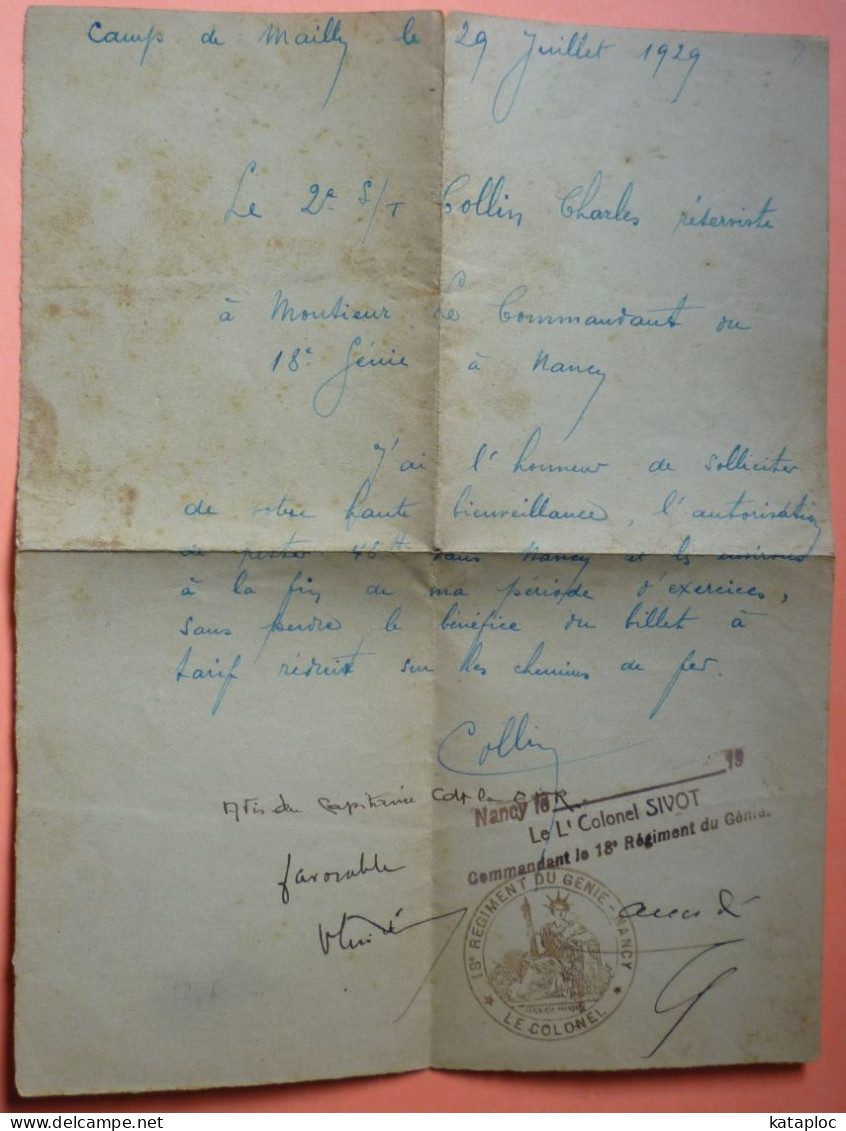 Camp de Mailly le 29 Juillet 1929
Le 2e S/T Collin Charles réserviste
à Monsieur le Commandant du
18e Génie à Nancy
J'ai l'honneur de solliciter
de votre haute bienveillance, l'autorisation
de rester 48h dans Nancy et les environs
à la fin de ma période d'exercices,
sans perdre le bénéfice du billet à
tarif réduit sur les chemins de fer.
Collin
Avis du Capitaine Cdt la
favorable
Nancy le 19
Le Lt Colonel SIVOT
Commandant le 18e Régiment du Génie.
accordé
18e REGIMENT DU GENIE - NANCY
★ LE COLONEL ★
www.delcampe.net
kataploc